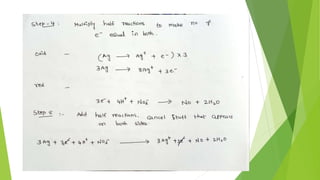 Step-4: Multiply half reactions to make no of
e⁻ equal in both.
oxid – (Ag → Ag⁺ + e⁻) x 3
3Ag → 3Ag⁺ + 3e⁻
red –
3e⁻ + 4H⁺ + NO₃⁻ → NO + 2H₂O
Step 5 :- Add half reactions, cancel stuff that appears
on both sides
3Ag + 3e⁻ + 4H⁺ + NO₃⁻ → 3Ag⁺ + 3e⁻ + NO + 2H₂O